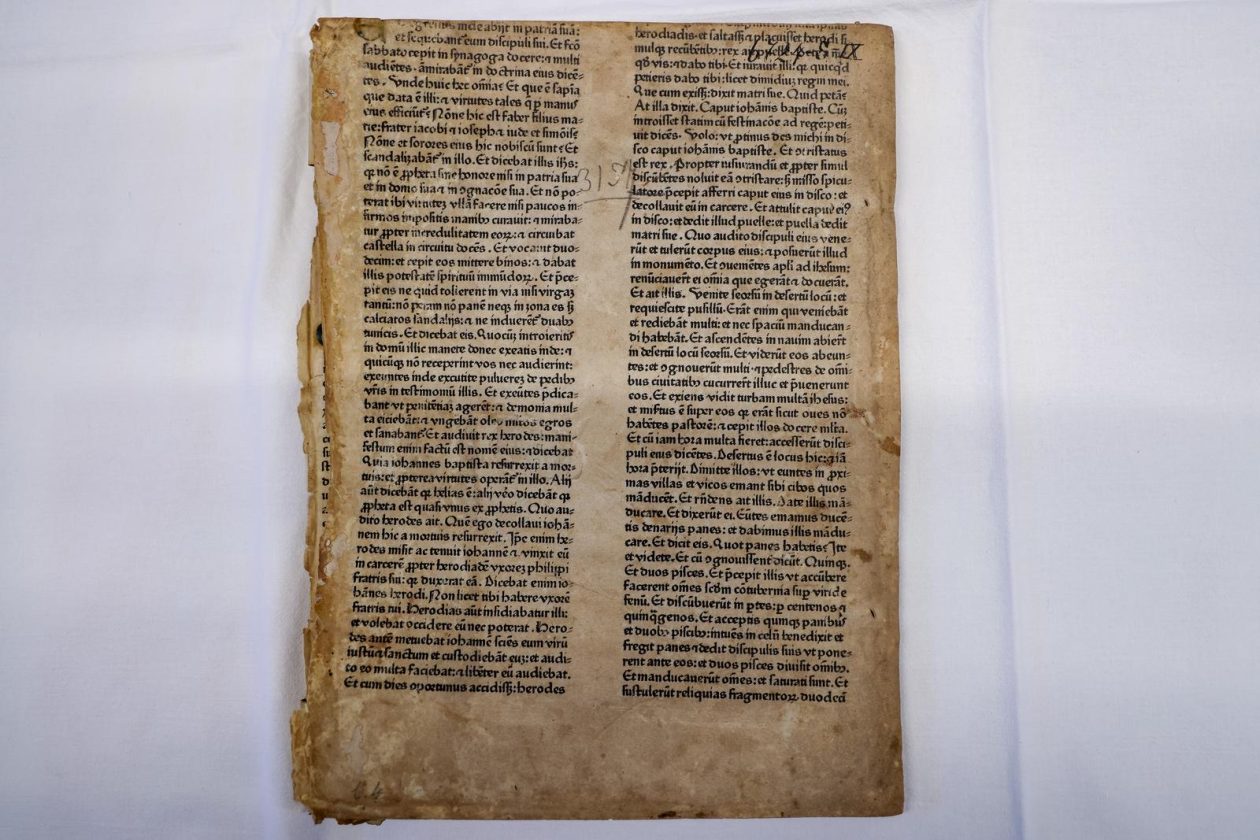 Egressus inde abijt in patriã suã:
et sequebant̃ eum discipuli sui. Et fc̃o
sabbato cepit in synagoga docere: ⁊ multi
audiẽtes ⸱ ãmirabant̃ in doctrina eius dicẽ-
tes. Vnde huic hec omnia? Et que ẽ sapĩa
que data ẽ illi: ⁊ virtutes tales q̃ ꝑ manus
eius efficiunt̃? Nõne hic est faber filius ma-
rie: frater iacobi ⁊ ioseph ⁊ iude et simõis?
Nõne et sorores eius hic nobiscũ sunt? Et
scandalizabant̃ in illo. Et dicebat illis ih̃s:
qꝛ nõ ẽ ꝓpheta sine honore nisi in patria sua
et in domo sua ⁊ in ꝯgnacõe sua. Et nõ po-
terat ibi virtutez vllã facere nisi paucos in-
firmos impositis manibꝰ curauit: ⁊ miraba-
tur ꝓpter incredulitatem eoꝝ: ⁊ circuibat
castella in circuitu docẽs. Et vocauit duo-
decim: et cepit eos mittere binos: ⁊ dabat
illis potestatẽ spirituũ immũdoꝝ. Et p̃ce-
pit eis ne quid tolierent in via nisi virgaꝫ
tantũ: nõ peram nõ panẽ neqꝫ in zona es sꝫ
calciatos sandalijs: ⁊ ne induerẽt̃ duabꝰ
tunicis. Et dicebat eis. Quocũqꝫ introieritis
in domũ illic manete donec exeatis inde: ⁊
quicũqꝫ nõ receperint vos nec audierint:
exeuntes inde excutite puluerẽ de pedibꝰ
vr̃is in testimoniũ illis. Et exeũtes p̃dica-
bant vt penitẽtiaꝫ agerẽt: ⁊ demonia mul-
ta eiciebãt: ⁊ vngebãt oleo multos egros
et sanabant̃. Et audiuit rex herodes: mani-
festum enim factũ est nomẽ eius: ⁊ dicebat
Quia iohannes baptista resurrexit a mor-
tuis: et ꝓpterea virtutes operant̃ in illo. Alij
aũt dicebãt qꝛ helias ẽ: alij vẽo dicebãt qꝛ
ꝓpheta est quasi vnus ex ꝓphetis. Quo au-
dito herodes ait. Quẽ ego decollaui iohã-
nem hic a mortuis resurrexit. Ip̃e enim he-
rodes misit ac tenuit iohannẽ ⁊ vinxit eũ
in carcerẽ ꝓpter herodiadẽ vxorẽ philippi
fratris sui: qꝛ duxerat eã. Dicebat enim io-
hãnes herodi. Non licet tibi habere vxorẽ
fratris tui. Herodias aũt insidiabatur illi:
et volebat occidere eũ nec poterat. Hero-
des antẽ metuebat iohannẽ sciẽs eum virũ
iustũ ⁊ sanctum et custodiebãt euꝫ: et audi-
to eo multa faciebat: ⁊ libẽter eũ audiebat.
Et cum dies oportunus accidissꝫ: herodes
herodiadis et saltassꝫ ⁊ placuisset herodi si
mulqꝫ recũbẽtibꝰ: rex ait puelle. Pete a me
qd̃ vis: ⁊ dabo tibi. Et iurauit illi: qꝛ quicqd̃
petieris dabo tibi: licet dimidiuꝫ regni mei.
Que cum exissꝫ: dixit matri sue. Quid petã?
At illa dixit. Caput iohãnis baptiste. Cũqꝫ
introisset statim cũ festinacõe ad regẽ: peti-
uit dicẽs. Volo: vt ꝓtinus des michi in di-
sco caput iohãnis baptiste. Et ꝯtristatus
est rex. Propter iusiurandũ et ꝓpter simul
discũbẽtes noluit eã ꝯtristare: sꝫ misso spicu-
latore p̃cepit afferri caput eius in disco: et
decollauit eũ in carcere. Et attulit caput eiꝰ
in disco: et dedit illud puelle: et puella dedit
matri sue. Quo audito discipuli eius vene-
rũt et tulerũt corpus eius: ⁊ posuerũt illud
in monumẽto. Et ꝯuenẽtes apl̃i ad ihesum:
renũciauerũt ei om̃ia que egerãt ⁊ docuerãt.
Et ait illis. Venite seorsũ in desertũ locũ: et
requiescite pusillũ. Erãt enim qui veniebãt
et rediebãt multi: et nec spaciũ manducan-
di habebãt. Et ascendẽtes in nauim abierũt
in desertũ locũ seorsũ. Et viderũt eos abeun-
tes: et ꝯgnouerũt multi ⸱ ⁊ pedestres de om̃i-
bus ciuitatibꝰ cucurrerũt illuc et p̃uenerunt
eos. Et exiens vidit turbam multã ih̃esus:
et misrtus ẽ super eos qꝛ erãt sicut oues nõ
habẽtes pastorẽ: ⁊ cepit illos docere ml̃ta.
Et cũ iam hora multa fieret: accesserũt disci-
puli eius dicẽtes. Desertus ẽ locus hic: ⁊ iã
hora p̃terijt. Dimitte illos: vt euntes in ꝓxi-
mas villas et vicos emant sibi cibos quos
mãducẽt. Et rñdens ait illis. Date illis mã-
ducare. Et dixerũt ei. Eũtes emamus ducẽ-
tis denarijs panes: et dabimus illis mãdu-
care. Et dicit eis. Quot panes habetis? Ite
et videte. Et cũ ꝯgnouissent dicũt. Quinqꝫ.
Et duos pisces. Et p̃cepit illis vt accũbere
facerent om̃es scdm̃ cõtubernia suꝑ viride
fenũ. Et discũbuerũt in ꝑtes: ꝑ centenos ⁊
quinq̃genos. Et acceptis quinqꝫ panibꝰ
et duobꝰ piscibꝰ: intuẽs in celũ benedixit et
fregit panes ⁊ dedit discipulis suis vt pone-
rent ante eos: et duos pisces diuisit om̃ibꝰ.
Et manducauerũt om̃es: et saturati sunt. Et
sustulerũt reliquias fragmentoꝝ duodecĩ